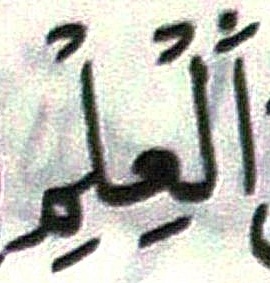 اَلْعِلْمِ